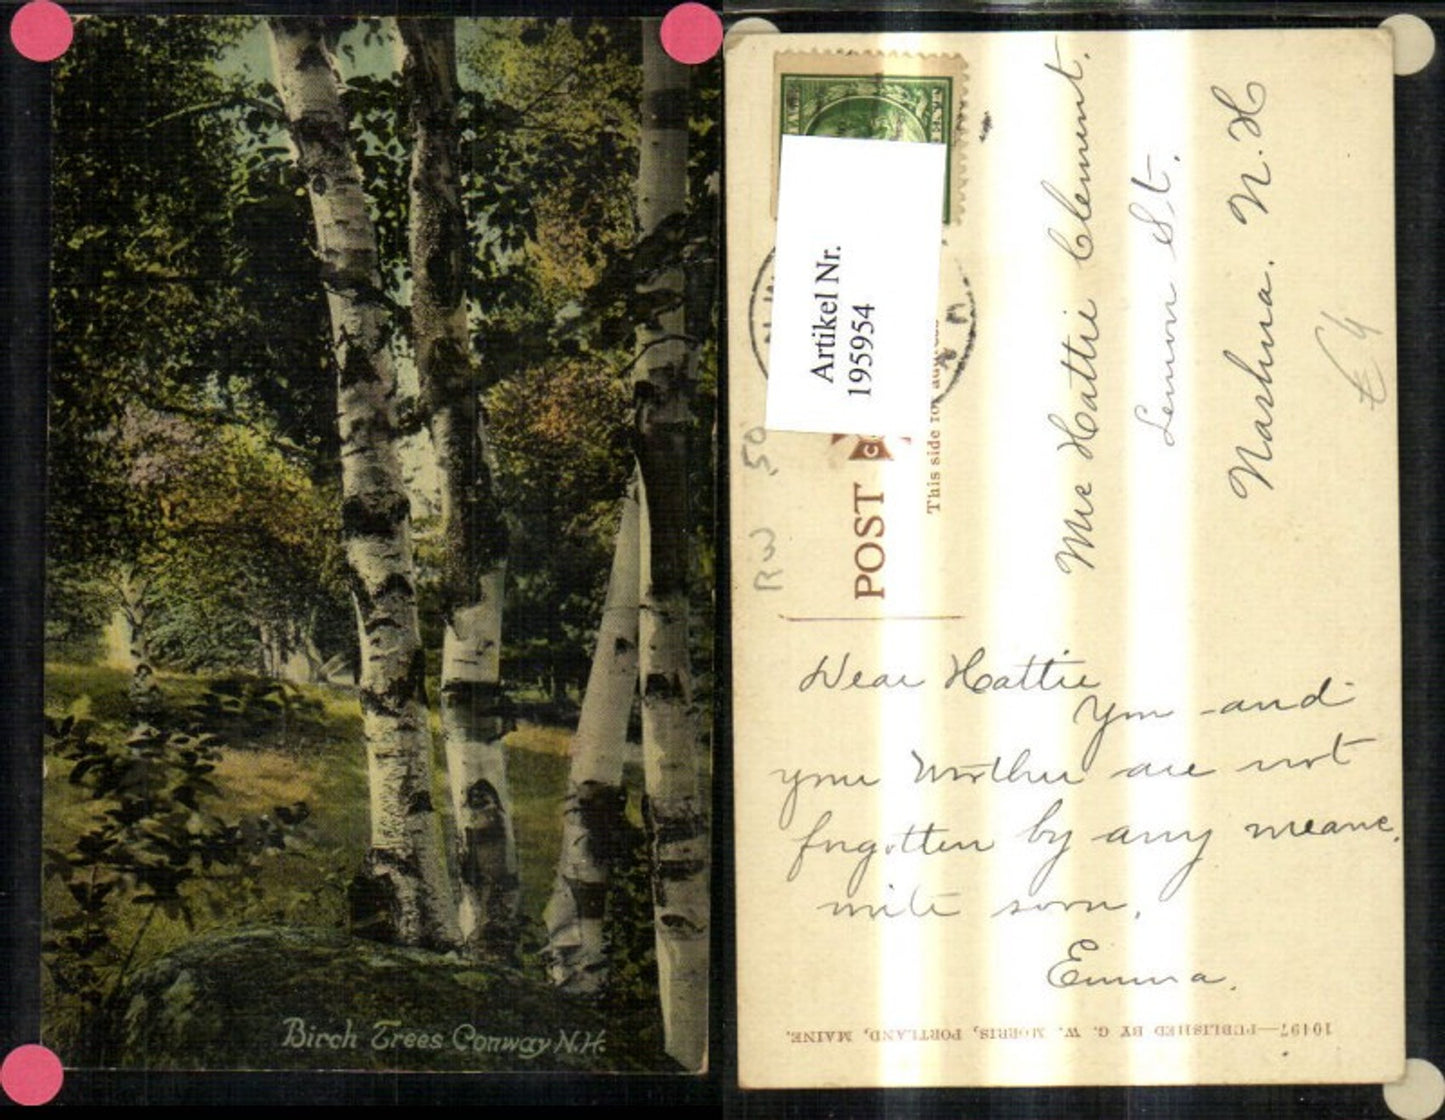 Birch Trees Conway N.H.
CENTS
Artikel Nr.
195954
POST C
This side for address
RW ,50
Mrs Hattie Clement.
Lemon St.
Nashua. N.H
€4
Dear Hattie
You and
your Mother are not
forgotten by any means.
write soon.
Emma.
10497—PUBLISHED BY G. W. MORRIS, PORTLAND, MAINE.